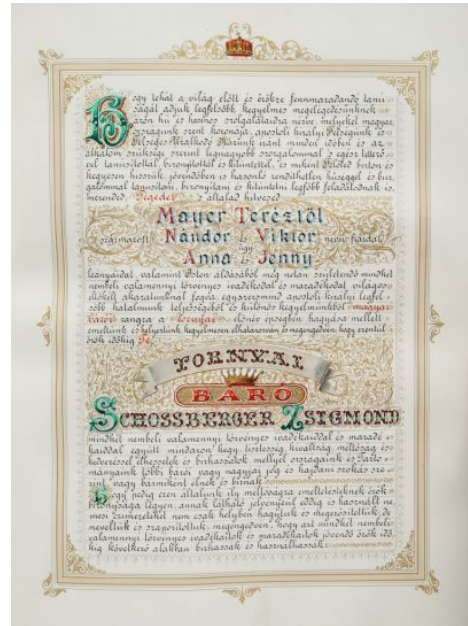 Hogy tehát a világ előtt és örökre fennmaradandó tanú-
ságát adjuk legfelsőbb kegyelmes megelégedésünknek
báró hű és hasznos szolgálataidra nézve, melyeket magyar
országunk szent koronája, apostoli királyi Felségünk és
Felséges Uralkodó Házunk iránt minden időben és az
általom szüksége szerint legnagyobb szorgalommal 's egész
vel tanúsítottál, bizonyítottál és kitüntettél, és miként Fölöled biston és
kegyesen hisszük, jövendőben is hasonló rendithetlen hűséggel és buz-
galommal tanúsítani, bizonyítani és kitüntetni legfőbb feladatodnak is-
merended, Tégedet 's általad hitvesed
Mayer Teréztől
származott Nándor és Viktor nevű fiaidat
úgy
Anna és Jenny
leányaidat, valamint Isten áldásából még netán születendő mindkét
nembeli valamennyi törvényes ivadékodat és maradékodat világos
előkelt akaratunknál fogva, egyszersmind apostoli királyi legfel-
sőbb hatalmunk teljességéből és különös kegyelmünkből magyar
bárói rangra a Tornyai előnév épségben hagyása mellett
emeltünk és helyeztünk kegyelmesen elhatározván és megengedvén, hogy ezentúl
örök időkig Te,
TORNYAI
BÁRÓ
SCHOSSBERGER ZSIGMOND
mindkét nembeli valamennyi törvényes ivadékaddal és maradé-
kaiddal együtt mindazon kegy, tisztesség, kiváltság, méltóság és
kedvezéssel élhessetek és birhassatok, mellyel országaink és Tarto-
mányaink többi bárói vagy nagyjai jog és hajdani szokás sze-
rint, vagy bármiként élnek és birnak
Hogy pedig ezen általunk ily méltóságra emeltetésteknek örök
bizonysága legyen, annak látható jelvényéül eddig is használt ne-
mesi czimereteket nem csak helyben hagytuk és megerősítettük, de
neveltük és szaporítottuk; megengedvén, hogy azt mindkét nembeli
valamennyi törvényes ivadékaitok és maradékaitok jövendő örök idő-
kig következő alakban birhassák és használhassák: